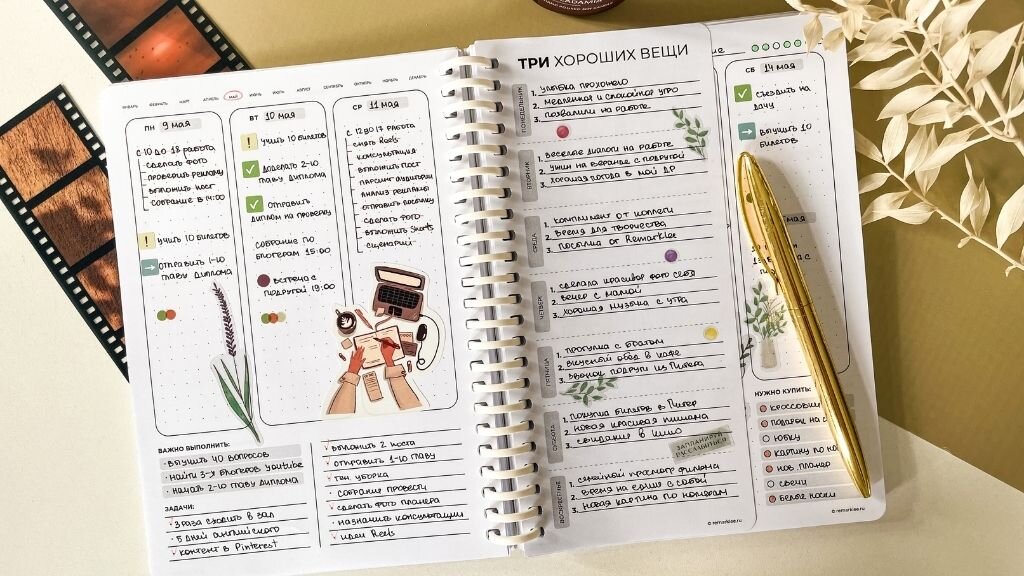 ЯНВАРЬ ФЕВРАЛЬ МАРТ АПРЕЛЬ МАЙ ИЮНЬ ИЮЛЬ АВГУСТ СЕНТЯБРЬ ОКТЯБРЬ НОЯБРЬ ДЕКАБРЬ
ПН 9 мая
с 10 до 18 работа
сделать фото
проверить рекламу
выложить пост
собрание в 14:00
! учить 10 билетов
отправить 1-ю
главу диплома
ВТ 10 мая
! учить 10 билетов
доделать 2-ю
главу диплома
отправить
диплом на проверку
собрание по
блогерам 15:00
встреча с
подругой 19:00
СР 11 мая
с 12 до 17 работа
снять Reels
консультация
выложить пост
парсинг аудитории
анализ рекламы
отправить посылку
сделать фото
выложить Shorts
сценарий
ВАЖНО ВЫПОЛНИТЬ:
· выучить 40 вопросов
· найти 3-х блогеров youtube
· начать 2-ю главу диплома
ЗАДАЧИ:
3 раза сходить в зал
5 дней английского
контент в Pinterest
выложить 2 поста
отправить 1-ю главу
ген. уборка
собрание провести
сделать фото планера
назначить консультации
идеи Reels
ТРИ ХОРОШИХ ВЕЩИ
ПОНЕДЕЛЬНИК
1. улыбка прохожего
2. медленное и спокойное утро
3. похвалили на работе
ВТОРНИК
1. веселые диалоги на работе
2. ужин на веранде с подругой
3. хорошая погода в мой ДР
СРЕДА
1. комплимент от коллеги
2. время для творчества
3. посылка от Remarklee
ЧЕТВЕРГ
1. сделала красивое фото себя
2. вечер с мамой
3. хорошая музыка с утра
ПЯТНИЦА
1. прогулка с братом
2. вкусный обед в кафе
3. звонок подруги из Питера
СУББОТА
1. покупка билетов в Питер
2. новая красивая пижама
3. свидание в кино
ЗАПЛАНИРУЙ
ВОСКРЕСЕНЬЕ
1. семейный просмотр фильма
2. время на едине с собой
3. новая картина по номерам
© remarklee.ru
СБ 14 мая
съездить на
дачу
выучить 10
билетов
мая
НУЖНО КУПИТЬ:
подарок на
юбку
картину по
нов. планер
свечи
белые носки
© remarklee.ru